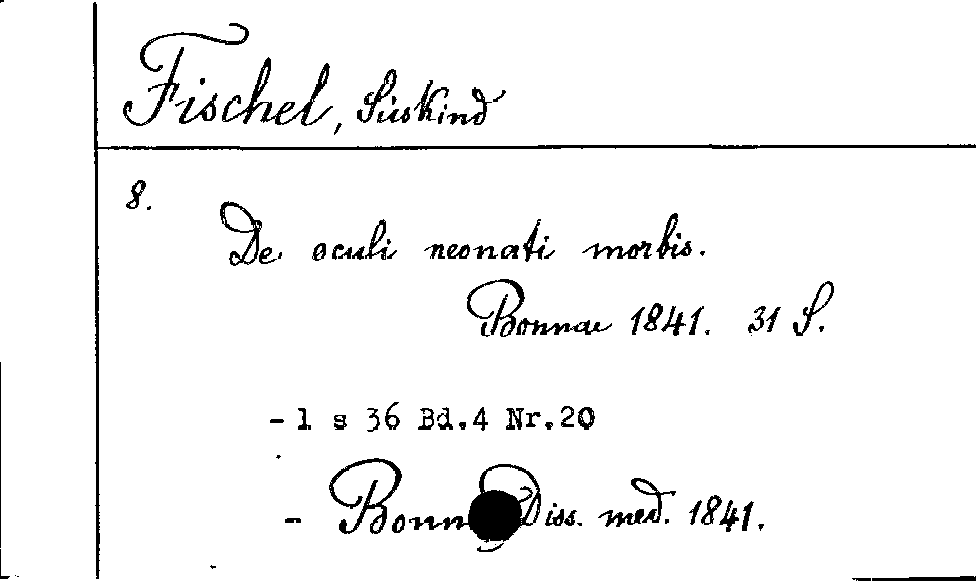 Fischel, Süskind
8.
De oculi neonati morbis.
Bonnae 1841. 31 S.
- 1 s 36 Bd.4 Nr.20
- Bonn Diss. med. 1841.